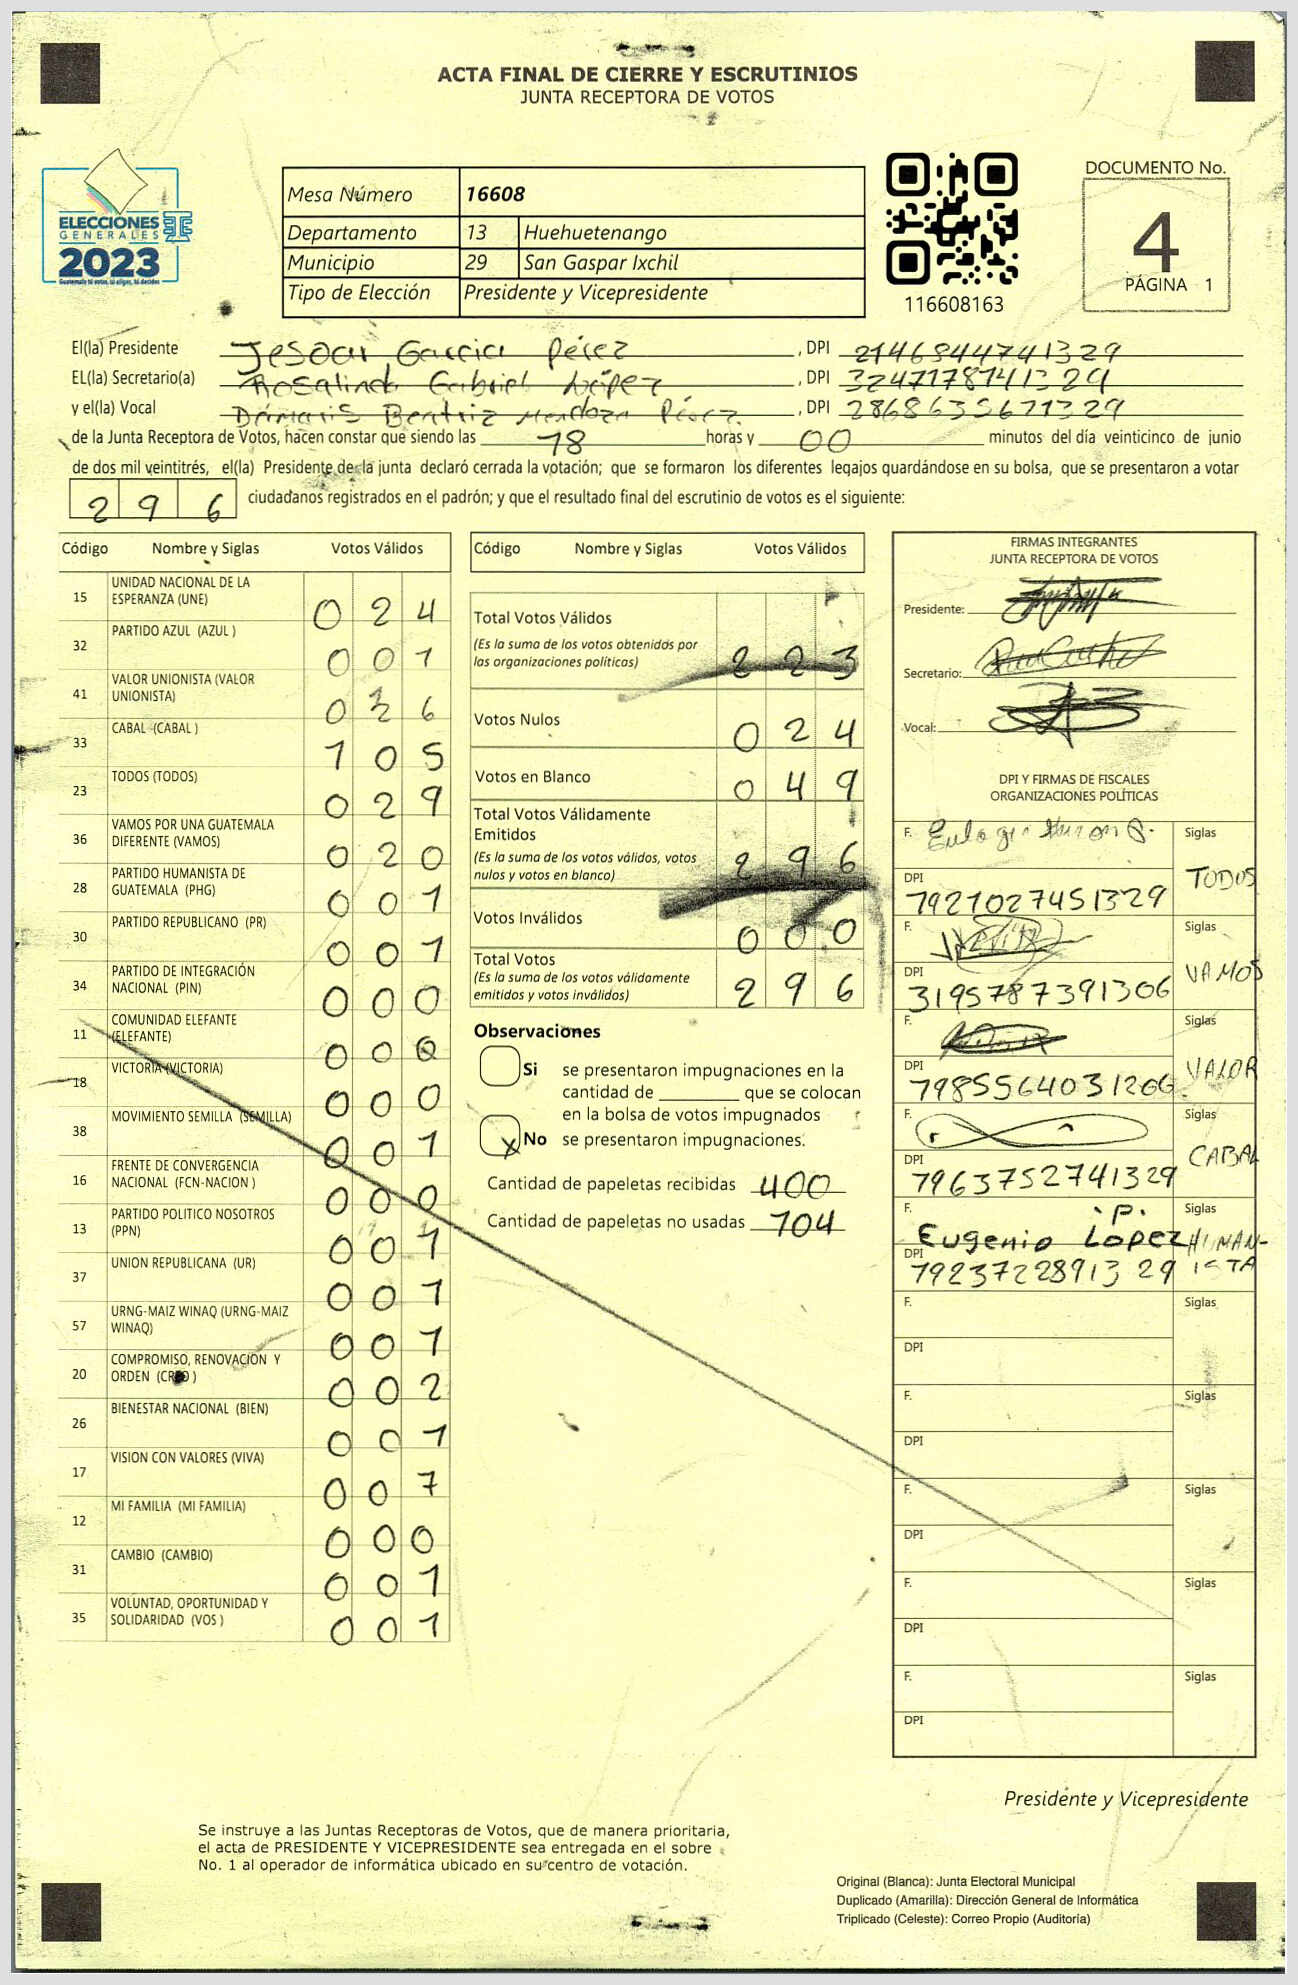 ACTA FINAL DE CIERRE Y ESCRUTINIOS
JUNTA RECEPTORA DE VOTOS
ELECCIONES
GENERALES
2023
Mesa Número 16608
Departamento 13 Huehuetenango
Municipio 29 San Gaspar Ixchil
Tipo de Elección Presidente y Vicepresidente
116608163
DOCUMENTO No.
4
PÁGINA 1
El(la) Presidente Garcia Pérez , DPI 2146844741329
EL(la) Secretario(a) Rosalinda Gabriel López , DPI
y el(la) Vocal Dámaris Beatriz Mendoza Pérez. , DPI 2868635671329
de la Junta Receptora de Votos, hacen constar que siendo las 18 horas y 00 minutos del día veinticinco de junio
de dos mil veintitrés, el(la) Presidente de la junta declaró cerrada la votación; que se formaron los diferentes legajos guardándose en su bolsa, que se presentaron a votar
296 ciudadanos registrados en el padrón; y que el resultado final del escrutinio de votos es el siguiente:
Código Nombre y Siglas Votos Válidos
15 UNIDAD NACIONAL DE LA ESPERANZA (UNE) 024
32 PARTIDO AZUL (AZUL ) 001
41 VALOR UNIONISTA (VALOR UNIONISTA) 026
33 CABAL (CABAL ) 105
23 TODOS (TODOS) 029
36 VAMOS POR UNA GUATEMALA DIFERENTE (VAMOS) 020
28 PARTIDO HUMANISTA DE GUATEMALA (PHG) 001
30 PARTIDO REPUBLICANO (PR) 001
34 PARTIDO DE INTEGRACIÓN NACIONAL (PIN) 000
11 COMUNIDAD ELEFANTE (ELEFANTE) 000
18 VICTORIA (VICTORIA) 000
38 MOVIMIENTO SEMILLA (SEMILLA) 001
16 FRENTE DE CONVERGENCIA NACIONAL (FCN-NACION ) 000
13 PARTIDO POLITICO NOSOTROS (PPN) 001
37 UNION REPUBLICANA (UR) 001
57 URNG-MAIZ WINAQ (URNG-MAIZ WINAQ) 001
20 COMPROMISO, RENOVACION Y ORDEN (CREO ) 002
26 BIENESTAR NACIONAL (BIEN) 001
17 VISION CON VALORES (VIVA) 007
12 MI FAMILIA (MI FAMILIA) 000
31 CAMBIO (CAMBIO) 001
35 VOLUNTAD, OPORTUNIDAD Y SOLIDARIDAD (VOS ) 001
Código Nombre y Siglas Votos Válidos
Total Votos Válidos 223
(Es la suma de los votos obtenidos por
las organizaciones políticas)
Votos Nulos 024
Votos en Blanco 049
Total Votos Válidamente
Emitidos 296
(Es la suma de los votos válidos, votos
nulos y votos en blanco)
Votos Inválidos 000
Total Votos 296
(Es la suma de los votos válidamente
emitidos y votos inválidos)
Observaciones
Si se presentaron impugnaciones en la
cantidad de ________ que se colocan
en la bolsa de votos impugnados
X No se presentaron impugnaciones.
Cantidad de papeletas recibidas 400
Cantidad de papeletas no usadas 104
FIRMAS INTEGRANTES
JUNTA RECEPTORA DE VOTOS
Presidente:
Secretario:
Vocal:
DPI Y FIRMAS DE FISCALES
ORGANIZACIONES POLÍTICAS
F. Siglas
DPI 1921027451329 TODOS
F. Siglas
DPI 3195787391306 VAMOS
F. Siglas
DPI 1985564031206 VALOR
F. Siglas
DPI 1963752741329 CABAL
F. Eugenio Lopez .P. Siglas
DPI 1923722891329 HUMANISTA
F. Siglas
DPI
F. Siglas
DPI
F. Siglas
DPI
F. Siglas
DPI
F. Siglas
DPI
Presidente y Vicepresidente
Se instruye a las Juntas Receptoras de Votos, que de manera prioritaria,
el acta de PRESIDENTE Y VICEPRESIDENTE sea entregada en el sobre
No. 1 al operador de informática ubicado en su centro de votación.
Original (Blanca): Junta Electoral Municipal
Duplicado (Amarilla): Dirección General de Informática
Triplicado (Celeste): Correo Propio (Auditoría)